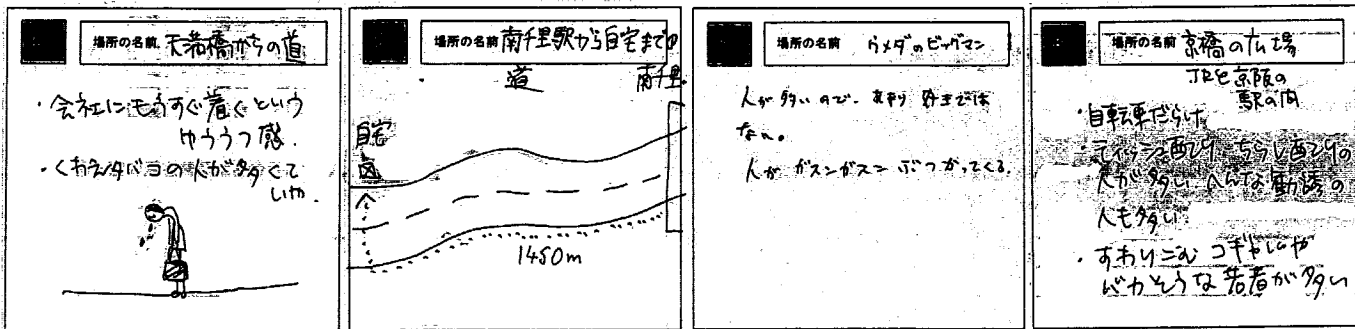 場所の名前 天満橋からの道
・会社にもうすぐ着くという
ゆううつ感.
・くわえタバコの人が多くて
いや.
場所の名前 南千里駅から自宅までの
道
南千里
自宅
1450m
場所の名前 ウメダのビッグマン
人が多いので、あまり好きでは
ない。
人がガスンガスンぶつかってくる.
場所の名前 京橋の広場
JRと京阪の
駅の間
・自転車だらけ
・ティッシュ配り ちらし配りの
人が多い へんな勧誘の
人も多い
・すわりこむ コギャルや
バカそうな若者が多い